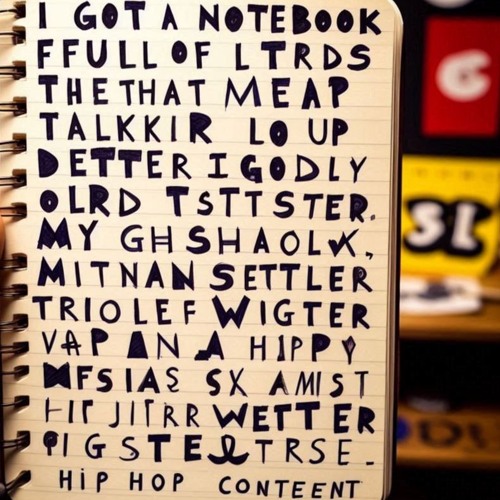 I GOT A NOTEBOOK
FFULL OF LTRDS
THE THAT MEAP
TALKKIR LO UP
DETTER I GODLY
OLRD TSTTSTER.
MY GHSHAOLVK,
MITNAN SETTLER
TRIOLEF WIGTER
VAP AN A HIPPY
MFSIAS SX AMIST
WETTER
HIP HOP CONTEENT
G
SL